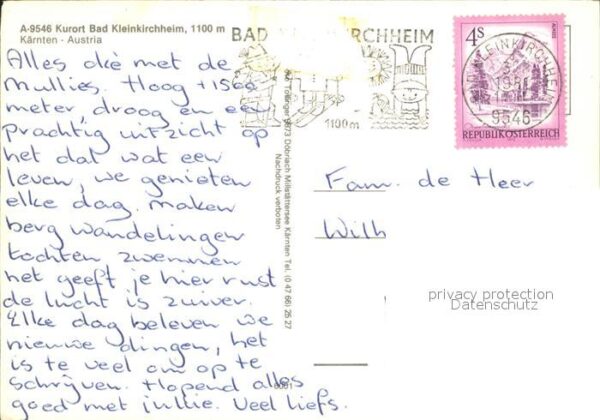 A-9546 Kurort Bad Kleinkirchheim, 1100 m
Kärnten - Austria
Alles okè met de
Mullies. Hoog +1500
meter, droog en een
prachtig uitzicht op
het dal wat een
leven, we genieten
elke dag. maken
berg wandelingen
tochten zwemmen
het geeft je hier rust
de lucht is zuiver.
Elke dag beleven we
nieuwe dingen, het
is te veel om op te
schrijven. Hopend alles
goed met jullie. Veel liefs.
BAD KLEINKIRCHHEIM
1100m
4s
REPUBLIK ÖSTERREICH
BAD KLEINKIRCHHEIM
9546
9873 Döbriach Millstättersee Kärnten Tel. (0 47 66) 25 27
Nachdruck verboten
Fam. de Heer
Wilh
privacy protection
Datenschutz